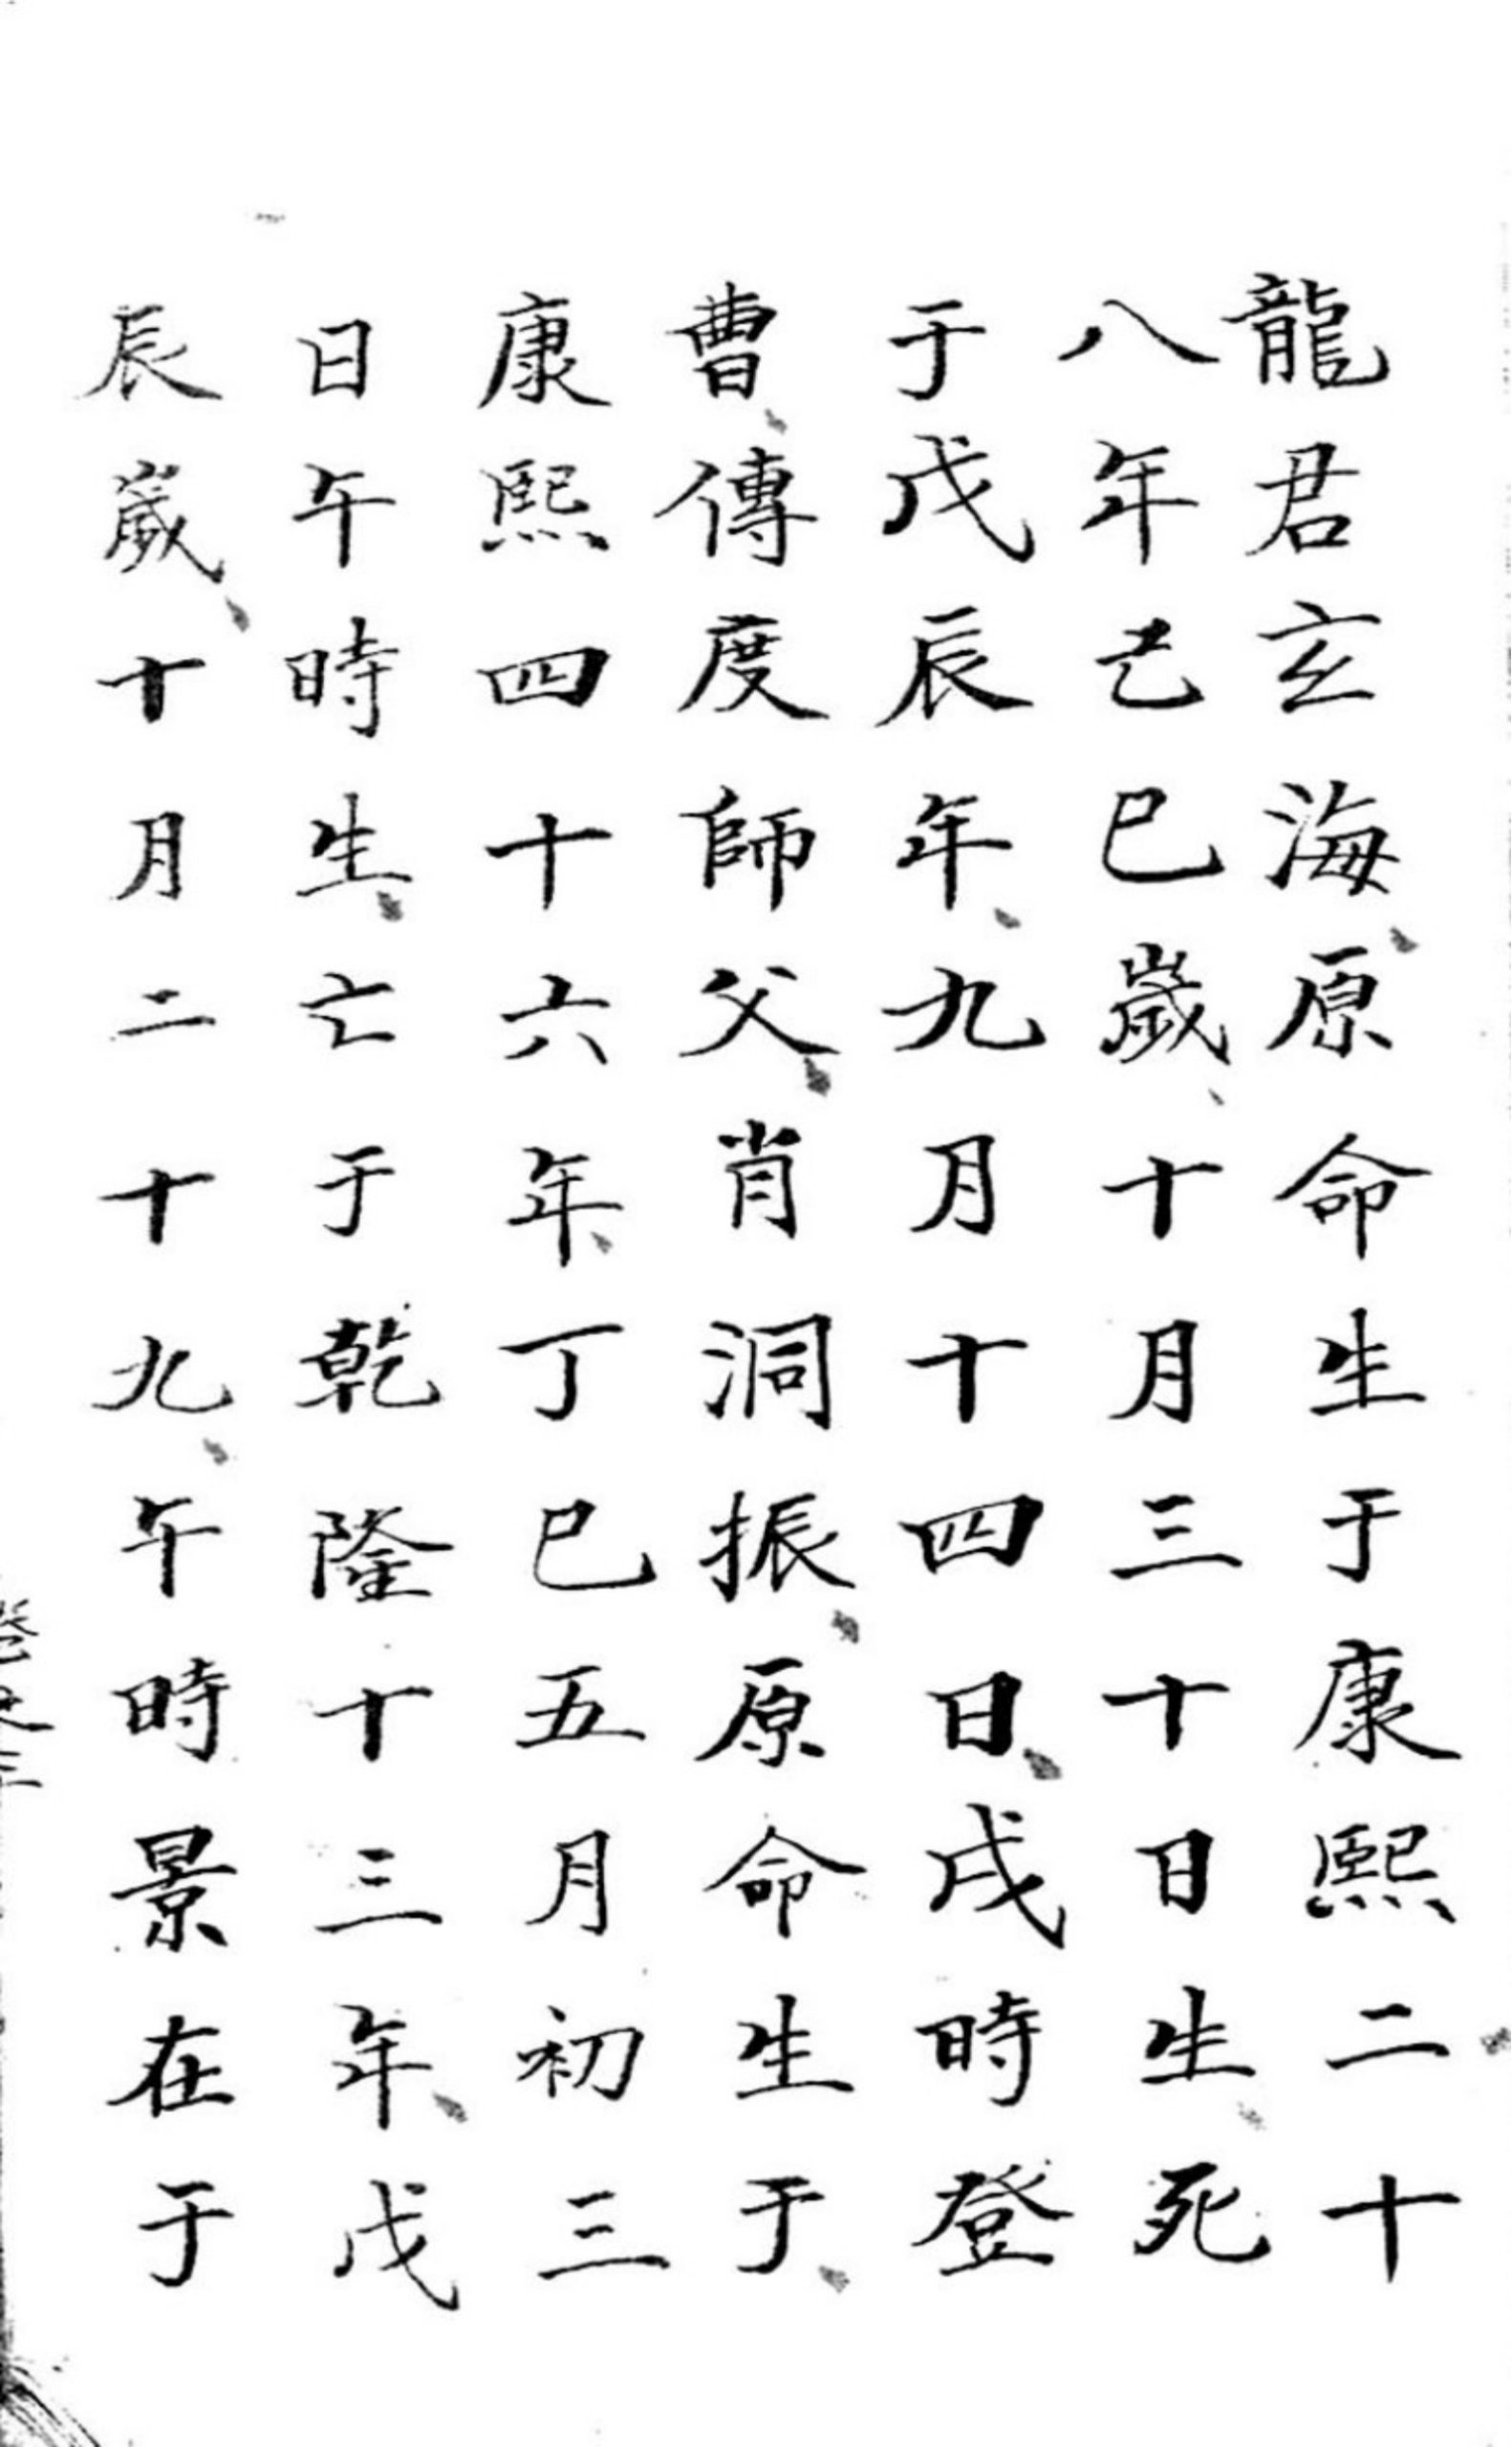 龍君玄海原命生于康熙二十
八年己巳歲十月三十日生死
于戊辰年九月十四日戌時登
曹傳度師父肖洞振原命生于
康熙四十六年丁巳五月初三
日午時生亡于乾隆十三年戊
辰歲十月二十九午時景在于